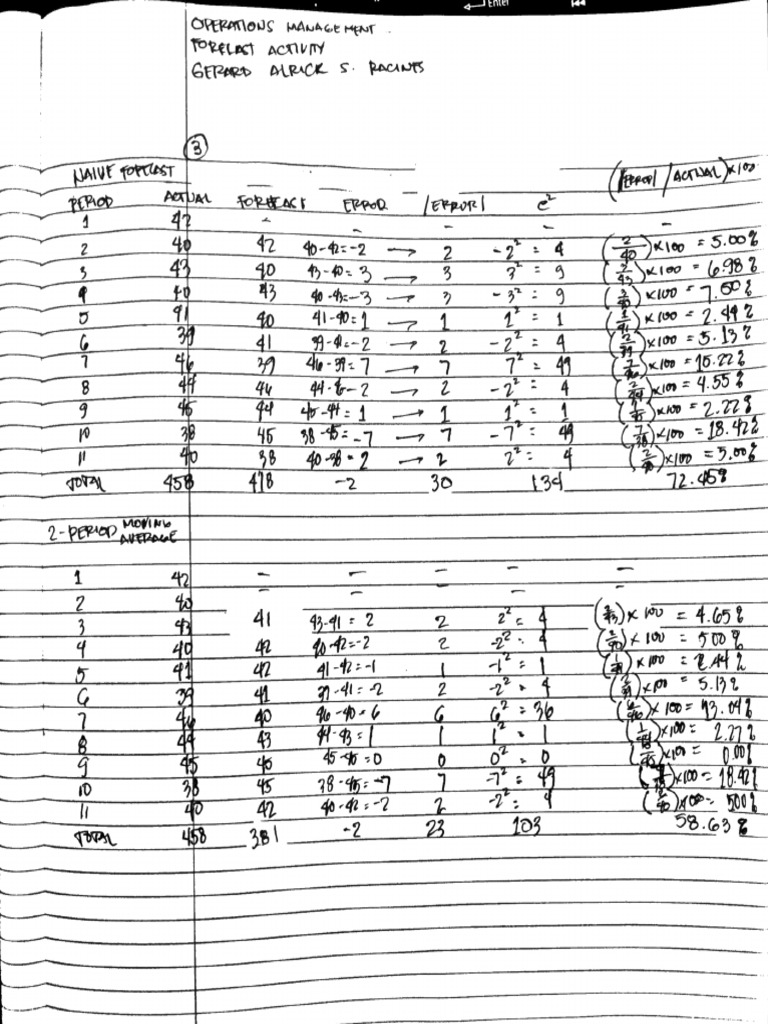 Enter
OPERATIONS MANAGEMENT
FORECAST ACTIVITY
GERARD ALRICK S. RACINES
3
NAIVE FORECAST
PERIOD ACTUAL FORECAST ERROR |ERROR| e² (|ERROR| / ACTUAL) x 100
1 42 - - - - -
2 40 42 40-42=-2 → 2 -2² = 4 (2/40) x 100 = 5.00%
3 43 40 43-40= 3 → 3 3² = 9 (3/43) x 100 = 6.98%
4 40 43 40-43=-3 → 3 -3² = 9 (3/40) x 100 = 7.50%
5 41 40 41-40= 1 → 1 1² = 1 (1/41) x 100 = 2.44%
6 39 41 39-41=-2 → 2 -2² = 4 (2/39) x 100 = 5.13%
7 46 39 46-39= 7 → 7 7² = 49 (7/46) x 100 = 15.22%
8 44 46 → 2 -2² = 4 (2/44) x 100 = 4.55%
9 45 44 45-44= 1 → 1 1² = 1 (1/45) x 100 = 2.22%
10 38 45 38-45= -7 → 7 -7² = 49 (7/38) x 100 = 18.42%
11 40 38 40-38= 2 → 2 2² = 4 (2/40) x 100 = 5.00%
TOTAL 458 418 -2 30 134 72.45%
2-PERIOD MOVING AVERAGE
1 42 - - - -
2 40 - - - -
3 43 41 43-41= 2 2 2² = 4 (2/43) x 100 = 4.65%
4 40 42 40-42=-2 2 -2² = 4 (2/40) x 100 = 5.00%
5 41 42 41-42=-1 1 -1² = 1 x 100 = 2.44%
6 39 41 39-41= -2 2 -2² = 4 (2/39) x 100 = 5.13%
7 46 40 46-40= 6 6 6² = 36 (6/46) x 100 = 13.04%
8 44 43 44-43= 1 1 1² = 1 (1/44) x 100 = 2.27%
9 45 45 45-45=0 0 0² = 0 x 100 = 0.00%
10 38 45 38-45=-7 7 -7² = 49 x 100 = 18.42%
11 40 42 40-42=-2 2 -2² = 4 (2/40) x 100 = 500%
TOTAL 458 381 -2 23 103 58.63%